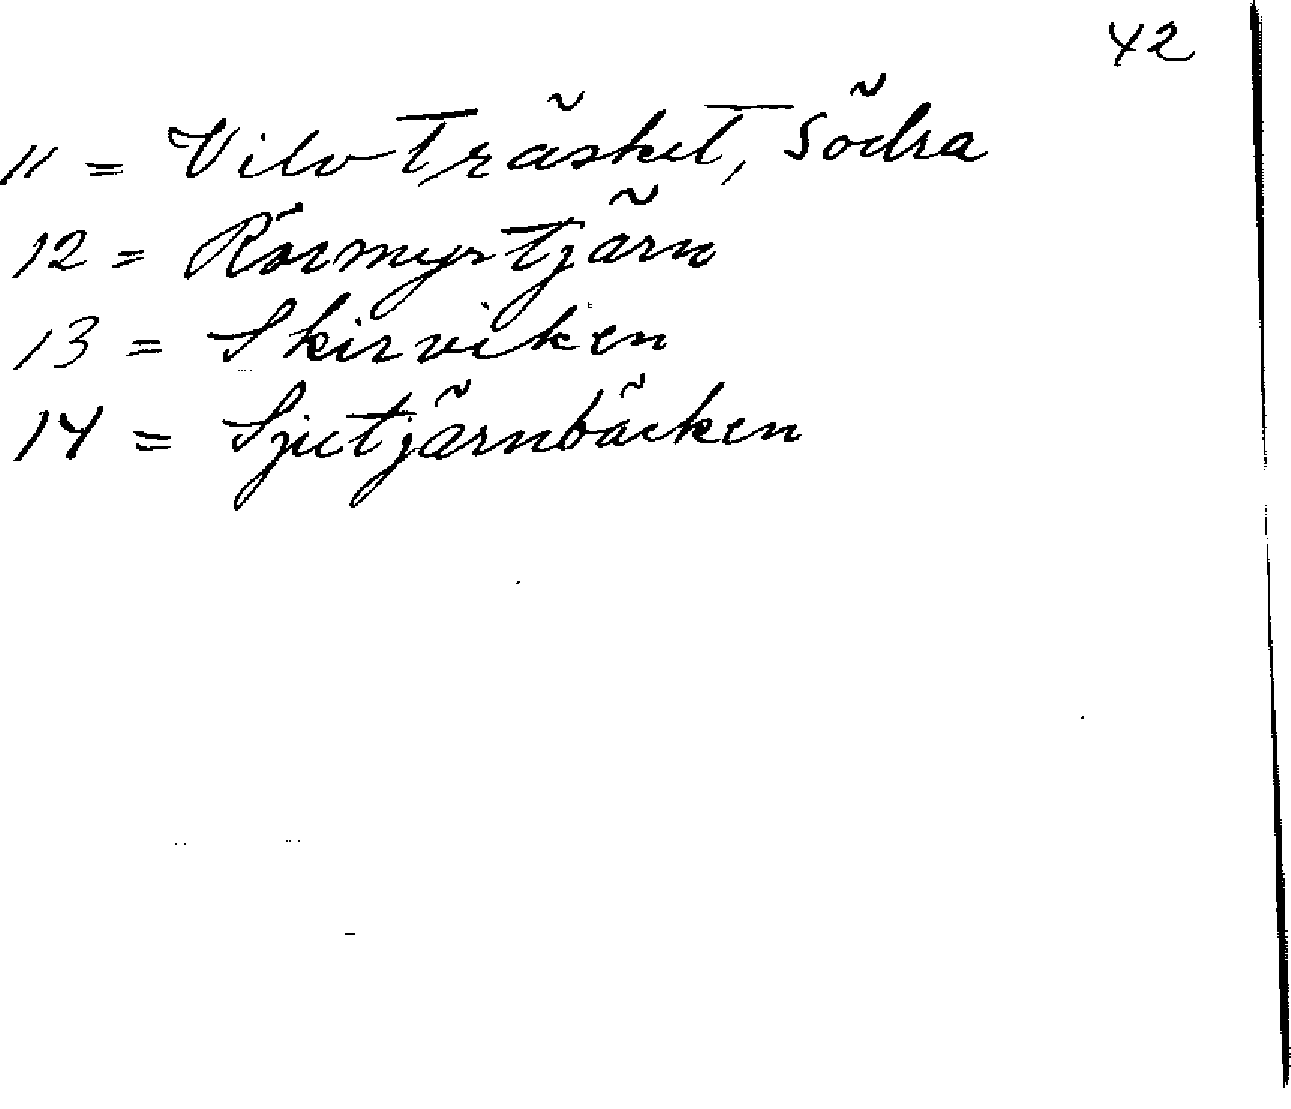 42
11 = Vilvträsket, Södra
12 = Rörmyrtjärn
13 = Skirviken
14 = Sjutjärnbäcken